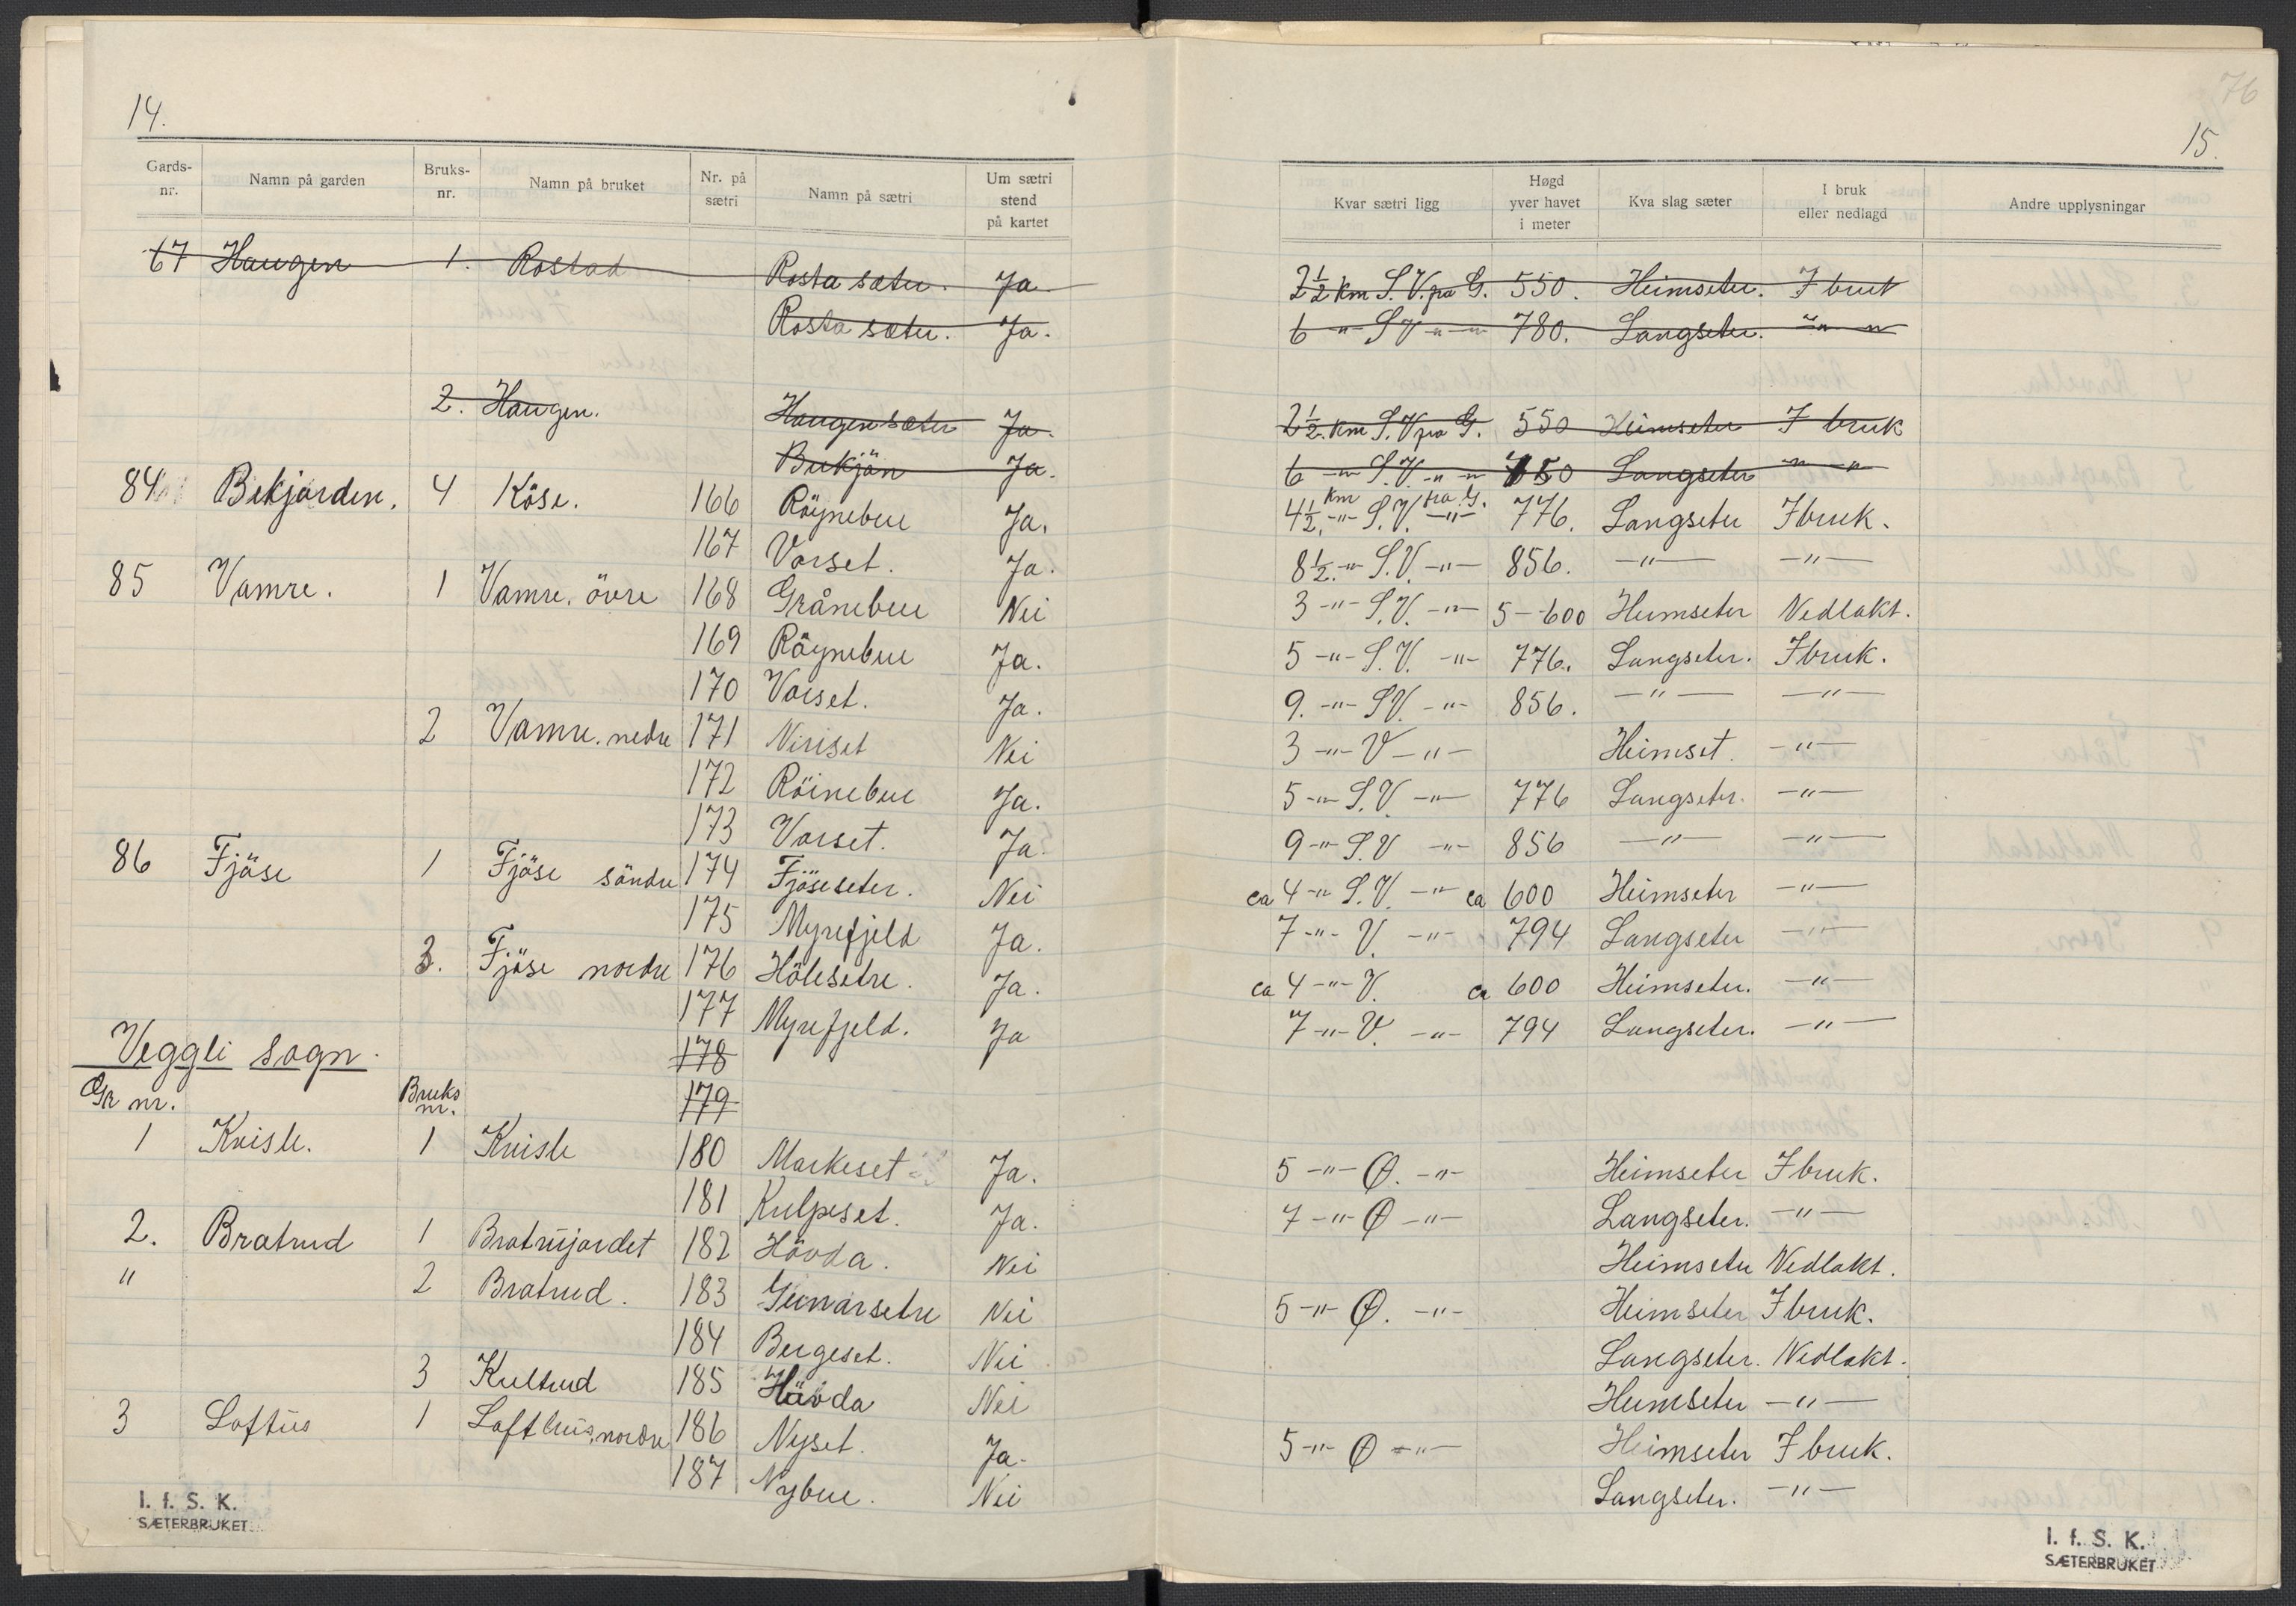 14.
76
15.
Gards-nr. Namn på garden Bruks-nr. Namn på bruket Nr. på sætri Namn på sætri Um sætri stend på kartet Kvar sætri ligg Høgd yver havet i meter Kva slag sæter I bruk eller nedlagd Andre upplysningar
67 Haugen 1. Rostad Rosta sæter. Ja 2 1/2 km S.V. fra G. 550. Heimseter. I bruk
Rosta sæter. Ja. 6 -"- S V -"- 780. Langseter. -"-
2. Haugen. Haugensæter Ja. 2 1/2 km S.V fra G. 550 Heimseter I bruk
Bukjän Ja. 6 -"- S.V. -"- 750 Langseter -"-
84 Bekjorden. 4 Köse. 166 Röynebue Ja. 4 1/2 km -"- S.V. fra G. -"- 776. Langseter I bruk.
167 Vorset. Ja. 8 1/2 -"- S.V. -"- 856. -"- -"-
85 Vamre. 1 Vamre. övre 168 Grånebue Nei 3 -"- S.V. -"- 5-600 Heimseter Nedlakt.
169 Röynebue Ja. 5 -"- S.V. -"- 776. Langseter. I bruk.
170 Vorset. Ja. 9. -"- S.V. -"- 856. -"- -"-
2 Vamre. nedre 171 Niriset Nei 3 -"- V -"- Heimset. -"-
172 Röinebue Ja. 5 -"- S.V -"- 776 Langseter. -"-
173 Vorset. Ja. 9 -"- S.V -"- 856 -"- -"-
86 Fjöse 1 Fjöse söndre 174 Fjöseseter. Nei ca 4 -"- S.V. -"- ca 600 Heimseter -"-
175 Myrefjeld Ja. 7 -"- V. -"- 794 Langseter -"-
3. Fjöse nordre 176 Hölesetre. Ja. ca 4 -"- V. ca 600 Heimseter. -"-
177 Myrefjeld. Ja 7 -"- V. -"- 794 Langseter. -"-
Veggli sogn.
178
Gr nr. Bruks nr. 179
1 Kvisle. 1 Kvisle 180 Markeset Ja. 5 -"- Ø. -"- Heimseter I bruk.
181 Kulpeset. Ja. 7 -"- Ø -"- Langseter. -"-
2. Bratrud 1 Bratrujordet 182 Hövda. Nei Heimseter Nedlakt.
" 2 Bratrud. 183 Gunnarsetre Nei 5 -"- Ø. -"- Heimseter I bruk.
184 Bergeset. Nei Langseter. Nedlakt.
3 Kultrud 185 Hövda Nei Heimseter -"-
3 Loftus 1 Lofthus, nordre 186 Nyset. Ja. 5 -"- Ø -"- Heimseter I bruk.
187 Nybue. Nei Langseter. -"-
I. f. S. K.
SÆTERBRUKET
I. f. S. K.
SÆTERBRUKET